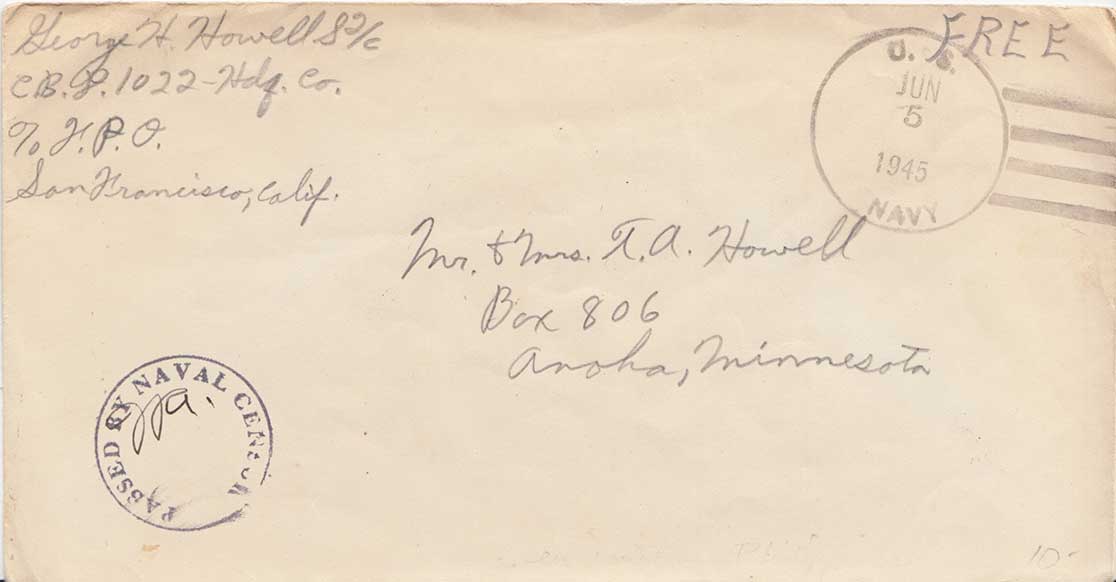 George H. Howell S2/c
C.B.D. 1022 - Hdq. Co.
℅ F.P.O.
San Francisco, Calif.
FREE
U. S.
JUN
5
1945
NAVY
Mr. & Mrs. T. A. Howell
Box 806
Anoka, Minnesota
PASSED BY NAVAL CENSOR
10-